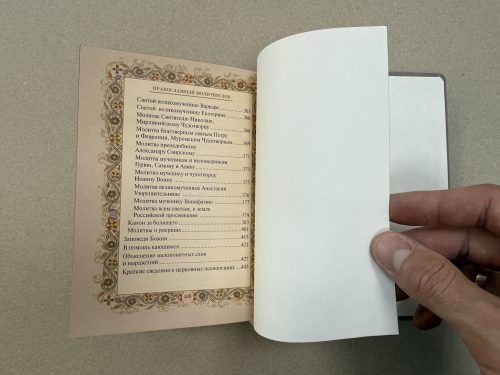 ПРАВОСЛАВНЫЙ МОЛИТВОСЛОВ
Святой великомученице Варваре ..... 365
Святой великомученице Екатерине ..... 366
Молитва Святителю Николаю,
Мирликийскому Чудотворцу ..... 368
Молитва благоверным святым Петру
и Февронии, Муромским Чудотворцам ..... 369
Молитва преподобному
Александру Свирскому ..... 371
Молитва мученикам и исповедникам
Гурию, Самону и Авиву ..... 373
Молитва мученику и чудотворцу
Иоанну Воину ..... 375
Молитва великомученице Анастасии
Узорешительнице ..... 376
Молитва мученику Вонифатию ..... 377
Молитва всем святым, в земле
Российской просиявшим ..... 379
Канон за болящего ..... 383
Молитвы о умерших ..... 401
Заповеди Божии ..... 415
В помощь кающимся ..... 421
Объяснение малопонятных слов
и выражений ..... 427
Краткие сведения о церковных песнопениях ..... 445
448